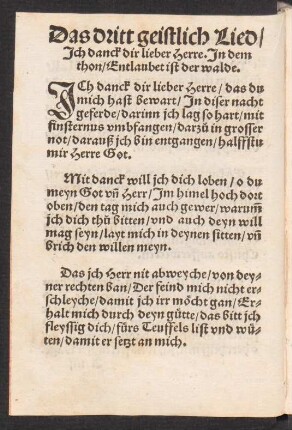 Das dritt geistlich Lied/
Jch danck dir lieber Herre. Jn dem
thon/Entlaubet ist der walde.
JCh danck dir lieber Herre/das du
mich hast bewart/Jn diser nacht
geferde/darinn jch lag so hart/mit
finsternus vmbfangen/darzů in grosser
not/darauß jch bin entgangen/halffstu
mir Herre Got.
Mit danck will jch dich loben/o du
meyn Got vñ Herr/Jm himel hoch dort
oben/den tag mich auch gewer/warumm
jch dich thů bitten/vnd auch deyn will
mag seyn/layt mich in deynen sitten/vñ
brich den willen meyn.
Das jch Herr nit abweyche/von dey-
ner rechten ban/Der feind mich nicht er-
schleyche/damit jch irr möcht gan/Er-
halt mich durch deyn gütte/das bitt jch
fleyssig dich/fürs Teuffels list vnd wü-
ten/damit er setzt an mich.